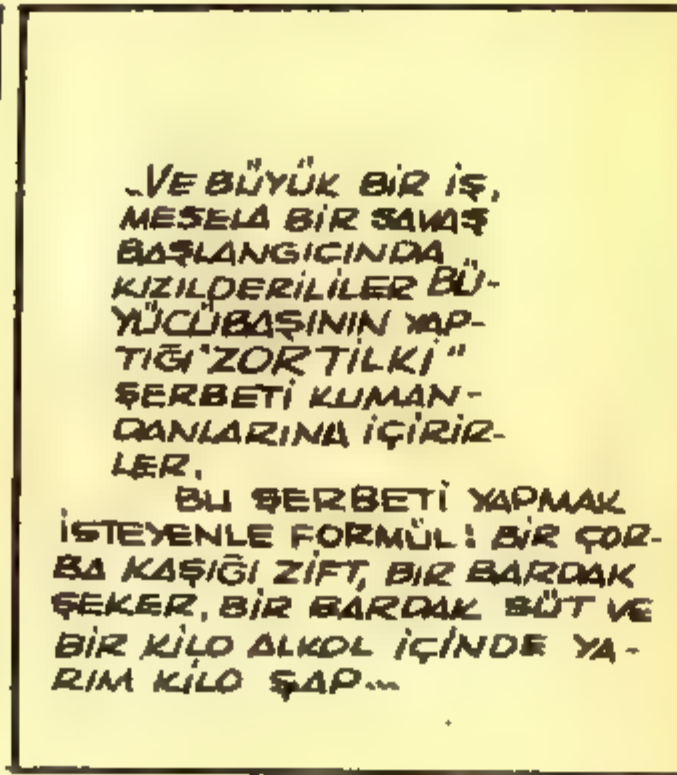 ..VE BÜYÜK BİR İŞ,
MESELA BİR SAVAŞ
BAŞLANGICINDA
KIZILDERİLİLER BÜ-
YÜCÜBAŞININ YAP-
TIĞI "ZORTİLKİ"
ŞERBETİ KUMAN-
DANLARINA İÇİRİR-
LER.
BU ŞERBETİ YAPMAK
İSTEYENLE FORMÜL: BİR ÇOR-
BA KAŞIĞI ZİFT, BİR BARDAK
ŞEKER, BİR BARDAK SÜT VE
BİR KİLO ALKOL İÇİNDE YA-
RIM KİLO ŞAP...